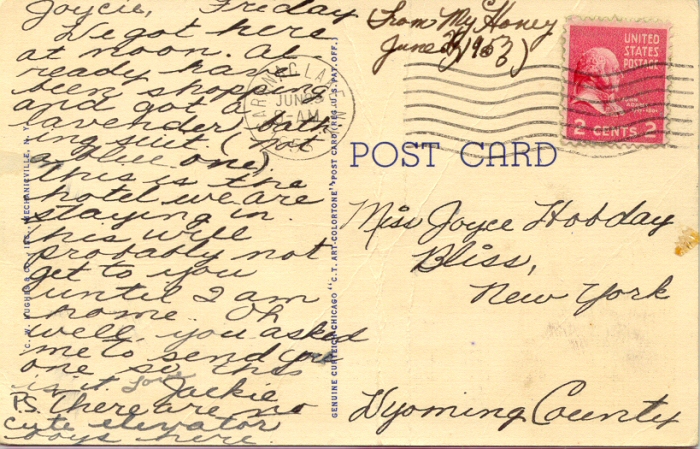 Joycie, Friday
We got here
at noon. Al-
ready have
been shopping
and got a
lavender bath-
ing suit. (not
a blue one).
This is the
hotel we are
staying in.
This will
probably not
get to you
until I am
home. Oh
well, you asked
me to send you
one so this
is it Love
Jackie
P.S. There are no
cute elevator
boys here.
From My Honey
June 1953)
JUN
AM
UNITED
STATES
POSTAGE
2 CENTS 2
POST CARD
Miss Joyce Hobday
Bliss,
New York
Wyoming County
GENUINE CURTEICH-CHICAGO "C.T. ART-COLORTONE" POST CARD (REG. U.S. PAT. OFF.)
MECHANICVILLE, N. Y.